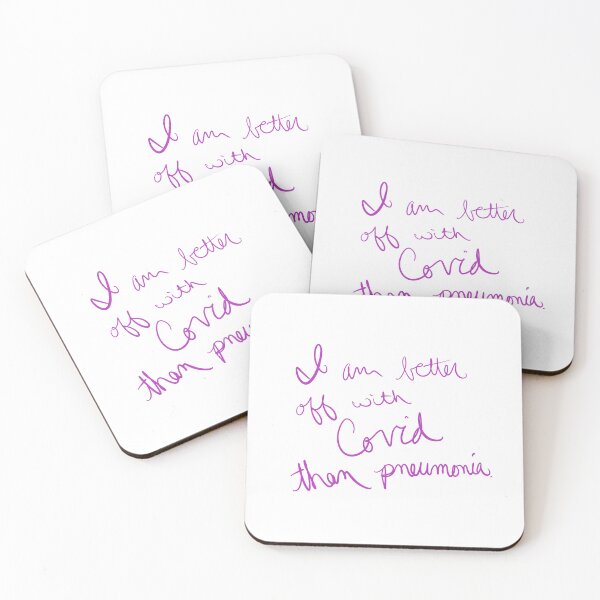 I am better
off with
I am better
off with
Covid
than pneumonia.
I am better
off with
Covid
than
I am better
off with
Covid
than pneumonia.